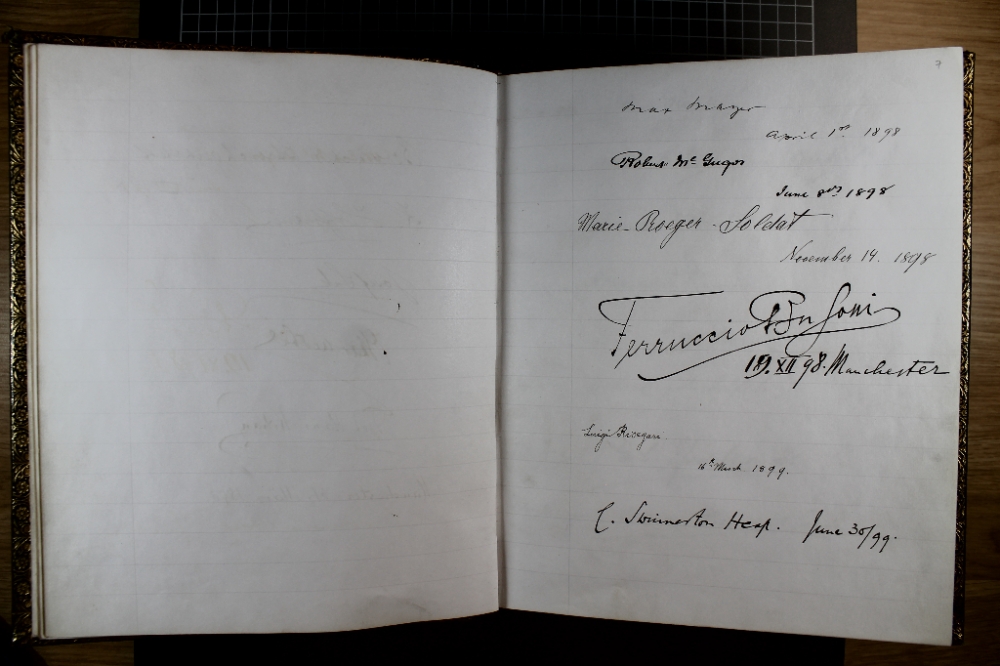 7
Max Mayer
April 1st 1898
Robert McGregor
June 8th 1898
Marie-Roeger-Soldat
November 14. 1898
Ferruccio Busoni
19. XII 98. Manchester
Luigi Risegari.
16th March 1899.
C. Swinnerton Heap. June 30/99.